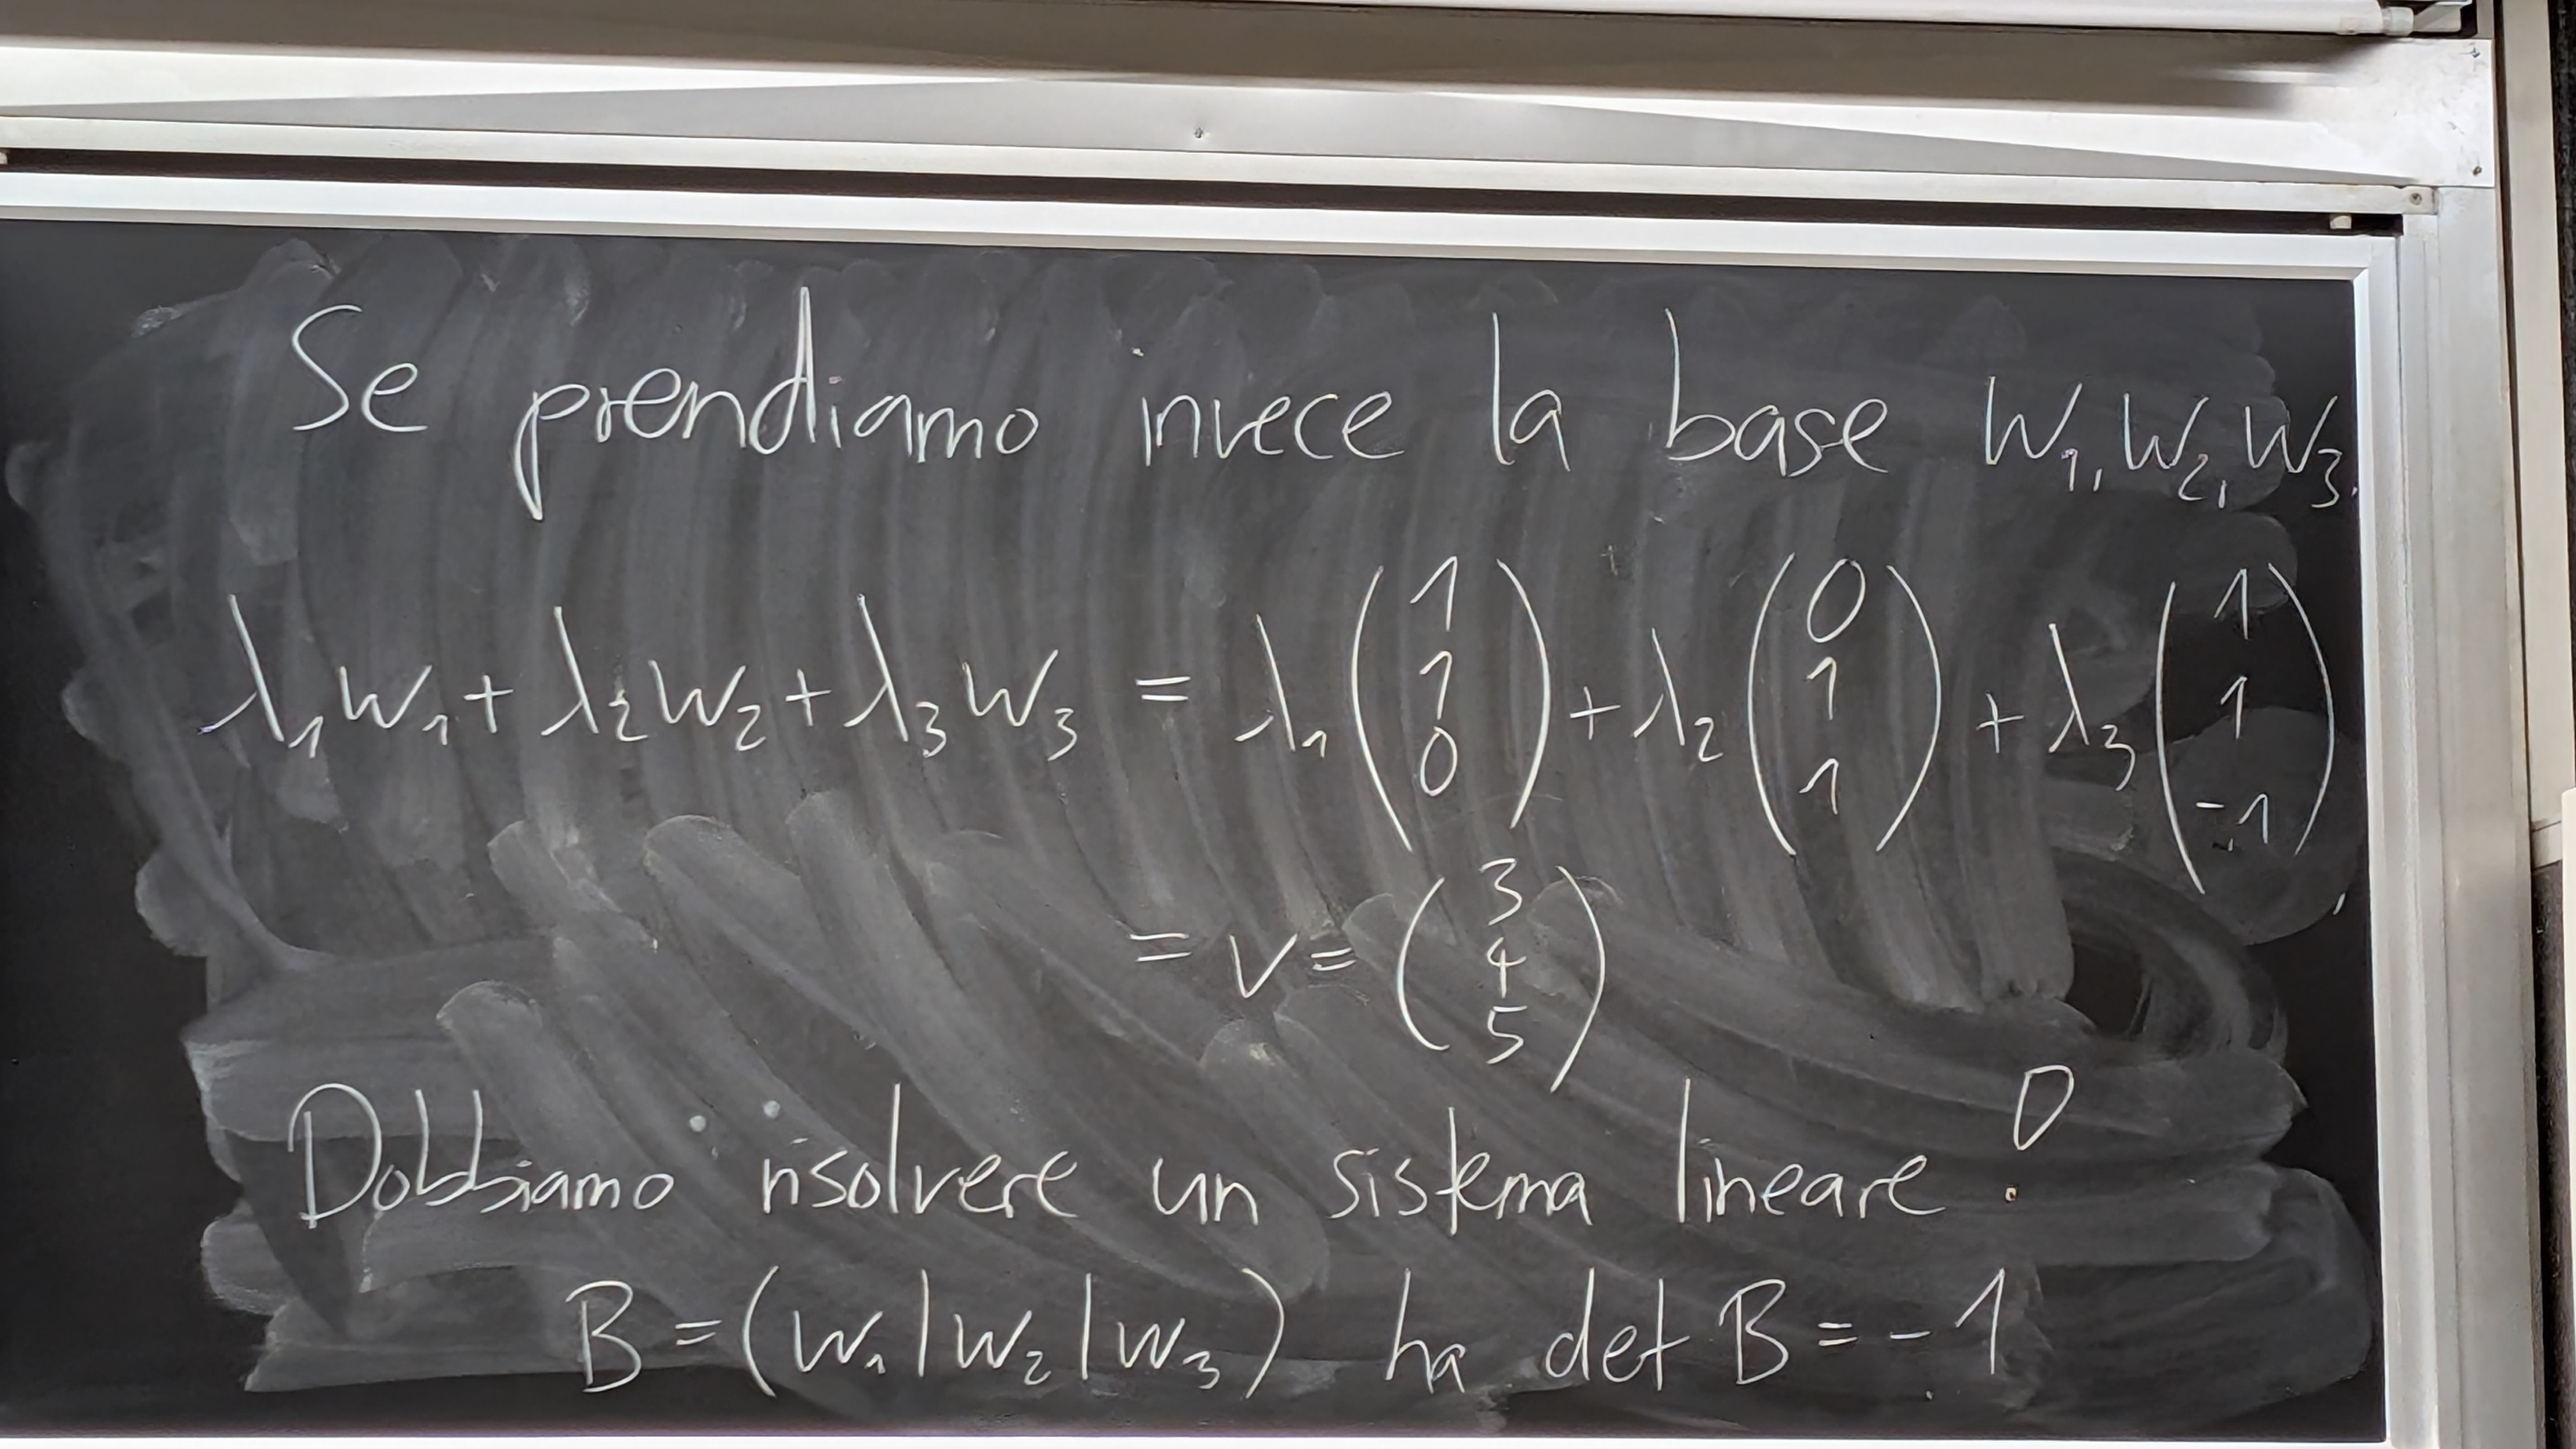 Se prendiamo invece la base W₁, W₂, W₃.
λ₁w₁ + λ₂w₂ + λ₃w₃ = λ₁ (1 1 0) + λ₂ (0 1 1) + λ₃ (1 1 -1)
= v = (3 4 5)
Dobbiamo risolvere un sistema lineare!
B = (w₁ | w₂ | w₃) ha det B = -1